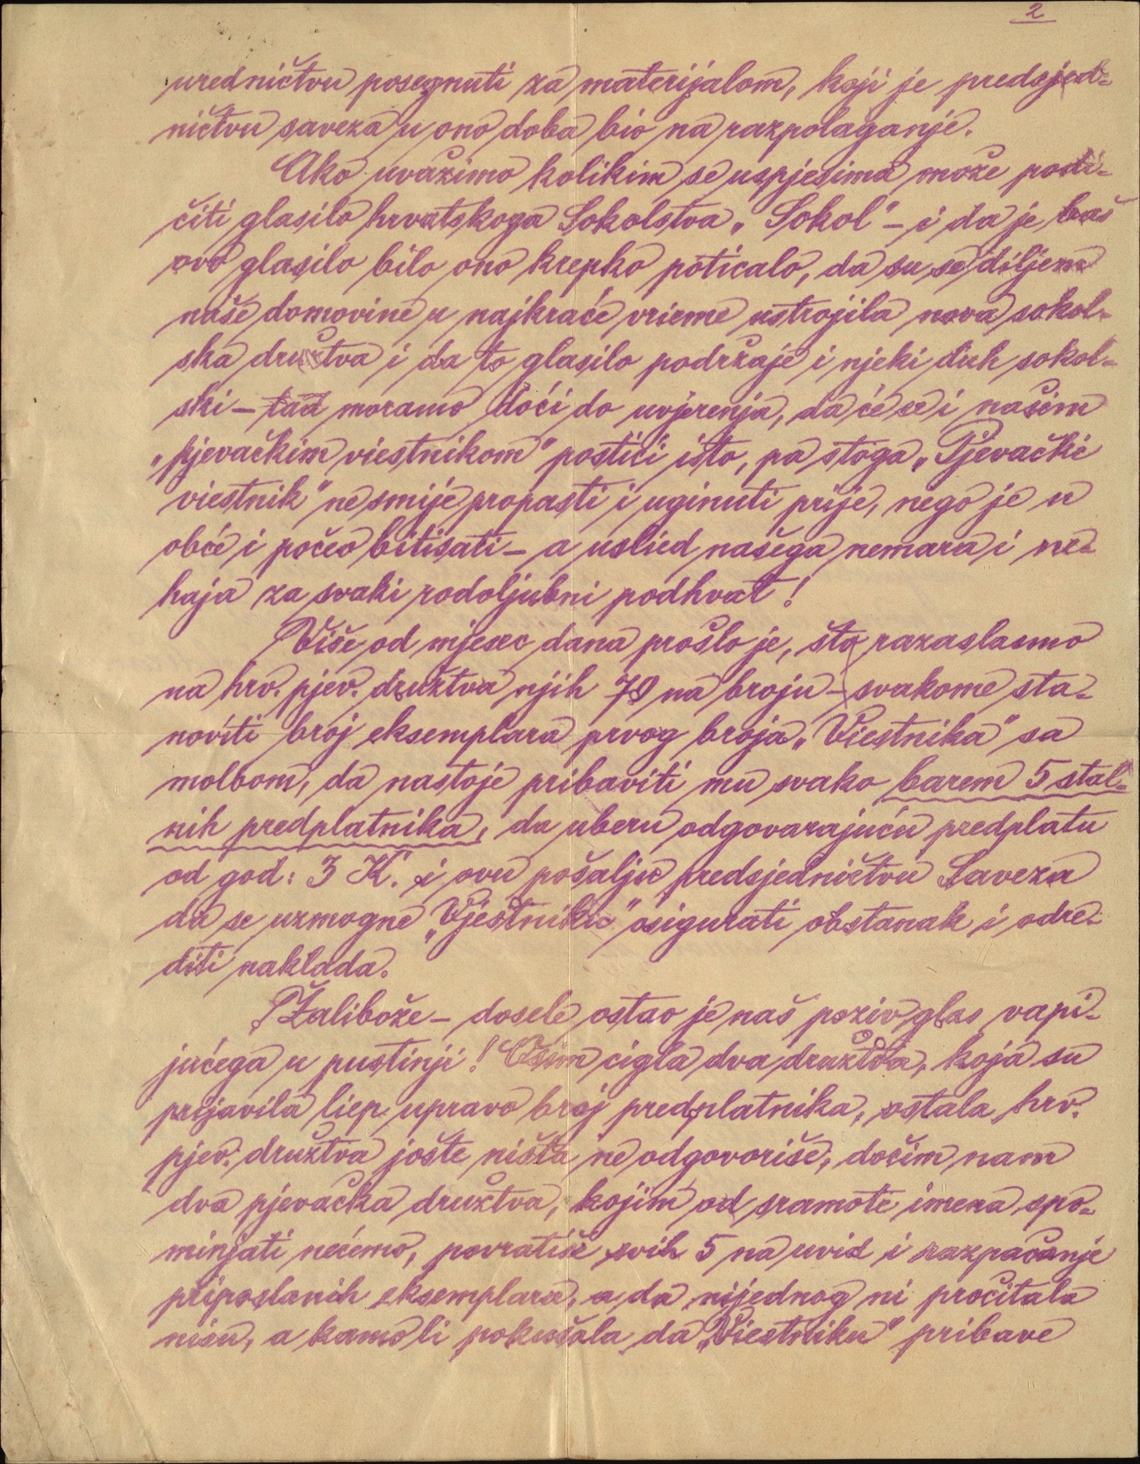 2
uredničtvu posegnuti za materijalom, koji je predsjed-
ničtvu saveza u ono doba bio na razpolaganje.
Ako uvažimo kolikim se uspjesima može podi-
čiti glasilo hrvatskoga Sokolstva „Sokol" – i da je baš
ovo glasilo bilo ono krepko poticalo, da su se diljem
naše domovine u najkraće vrieme ustrojila nova sokol-
ska družtva i da to glasilo podržaje i njeki duh sokol-
ski – tad moramo doći do uvjerenja, da će se i našim
„pjevačkim viestnikom" postići isto, pa stoga „Pjevački
viestnik" ne smije propasti i uginuti prije, nego je u
obće i počeo bitisati – a uslied našega nemara i ne-
haja za svaki rodoljubni podhvat!
Više od mjesec dana prošlo je, što razaslasmo
na hrv. pjev. družtva njih 79 na broju – svakome sta-
noviti broj eksemplara prvog broja „Viestnika" sa
molbom, da nastoje pribaviti mu svako barem 5 stal-
nih predplatnika, da uberu odgovarajuću predplatu
od god: 3 K. i ovu pošalju predsjedničtvu Saveza
da se uzmogne „Vjestniku" osigurati obstanak i odre-
diti naklada.
Žalibože – dosele ostao je naš poziv glas vapi-
jućega u pustinji! Osim cigla dva družtva, koja su
prijavila liep upravo broj predplatnika, ostala hrv.
pjev. družtva jošte ništa ne odgovoriše, dočim nam
dva pjevačka družtva, kojim od sramote imena spo-
minjati nećemo, povratiše svih 5 na uvid i razpačanje
priposlanih eksemplara, a da nijednog ni pročitala
nisu, a kamo li pokušala da „Viestniku" pribave